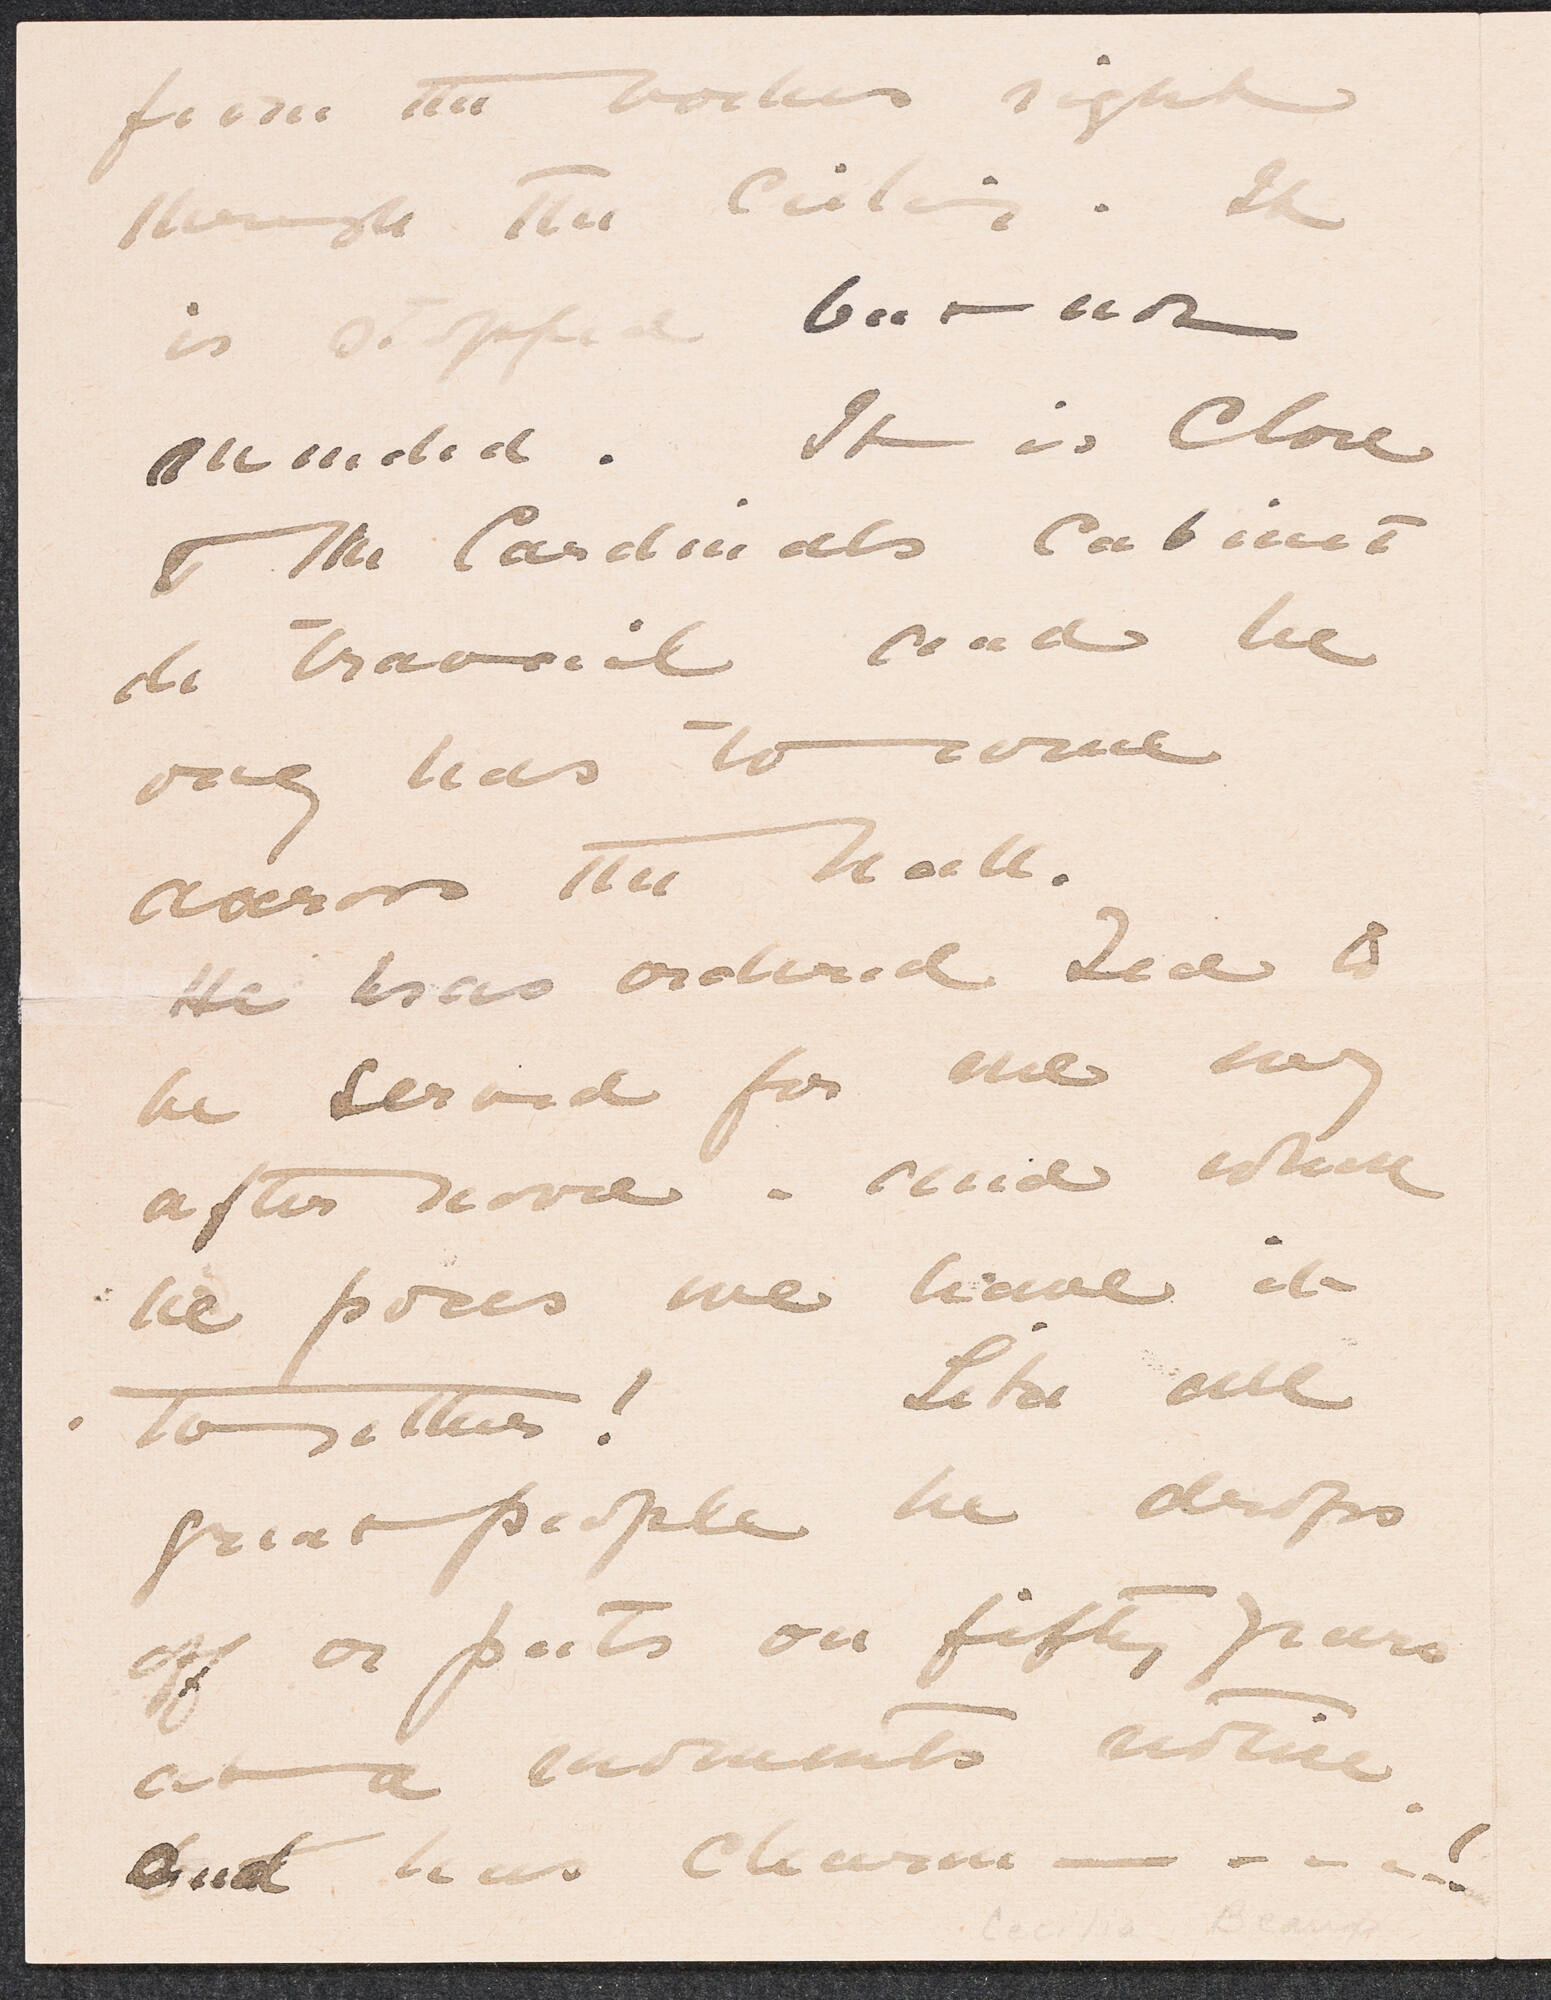 from the boches right
through the Ceiling. It
is stopped but not
mended. It is Close
to the Cardinals Cabinet
de travail and he
ony has to come
across the hall.
He has ordered Tea to
be served for me evy
afternoon - and when
he poses we have it
together! Like all
great people he drops
off or puts on fifty years
at a moments notice.
And has Charm — - - - !
Cecilia Beaux